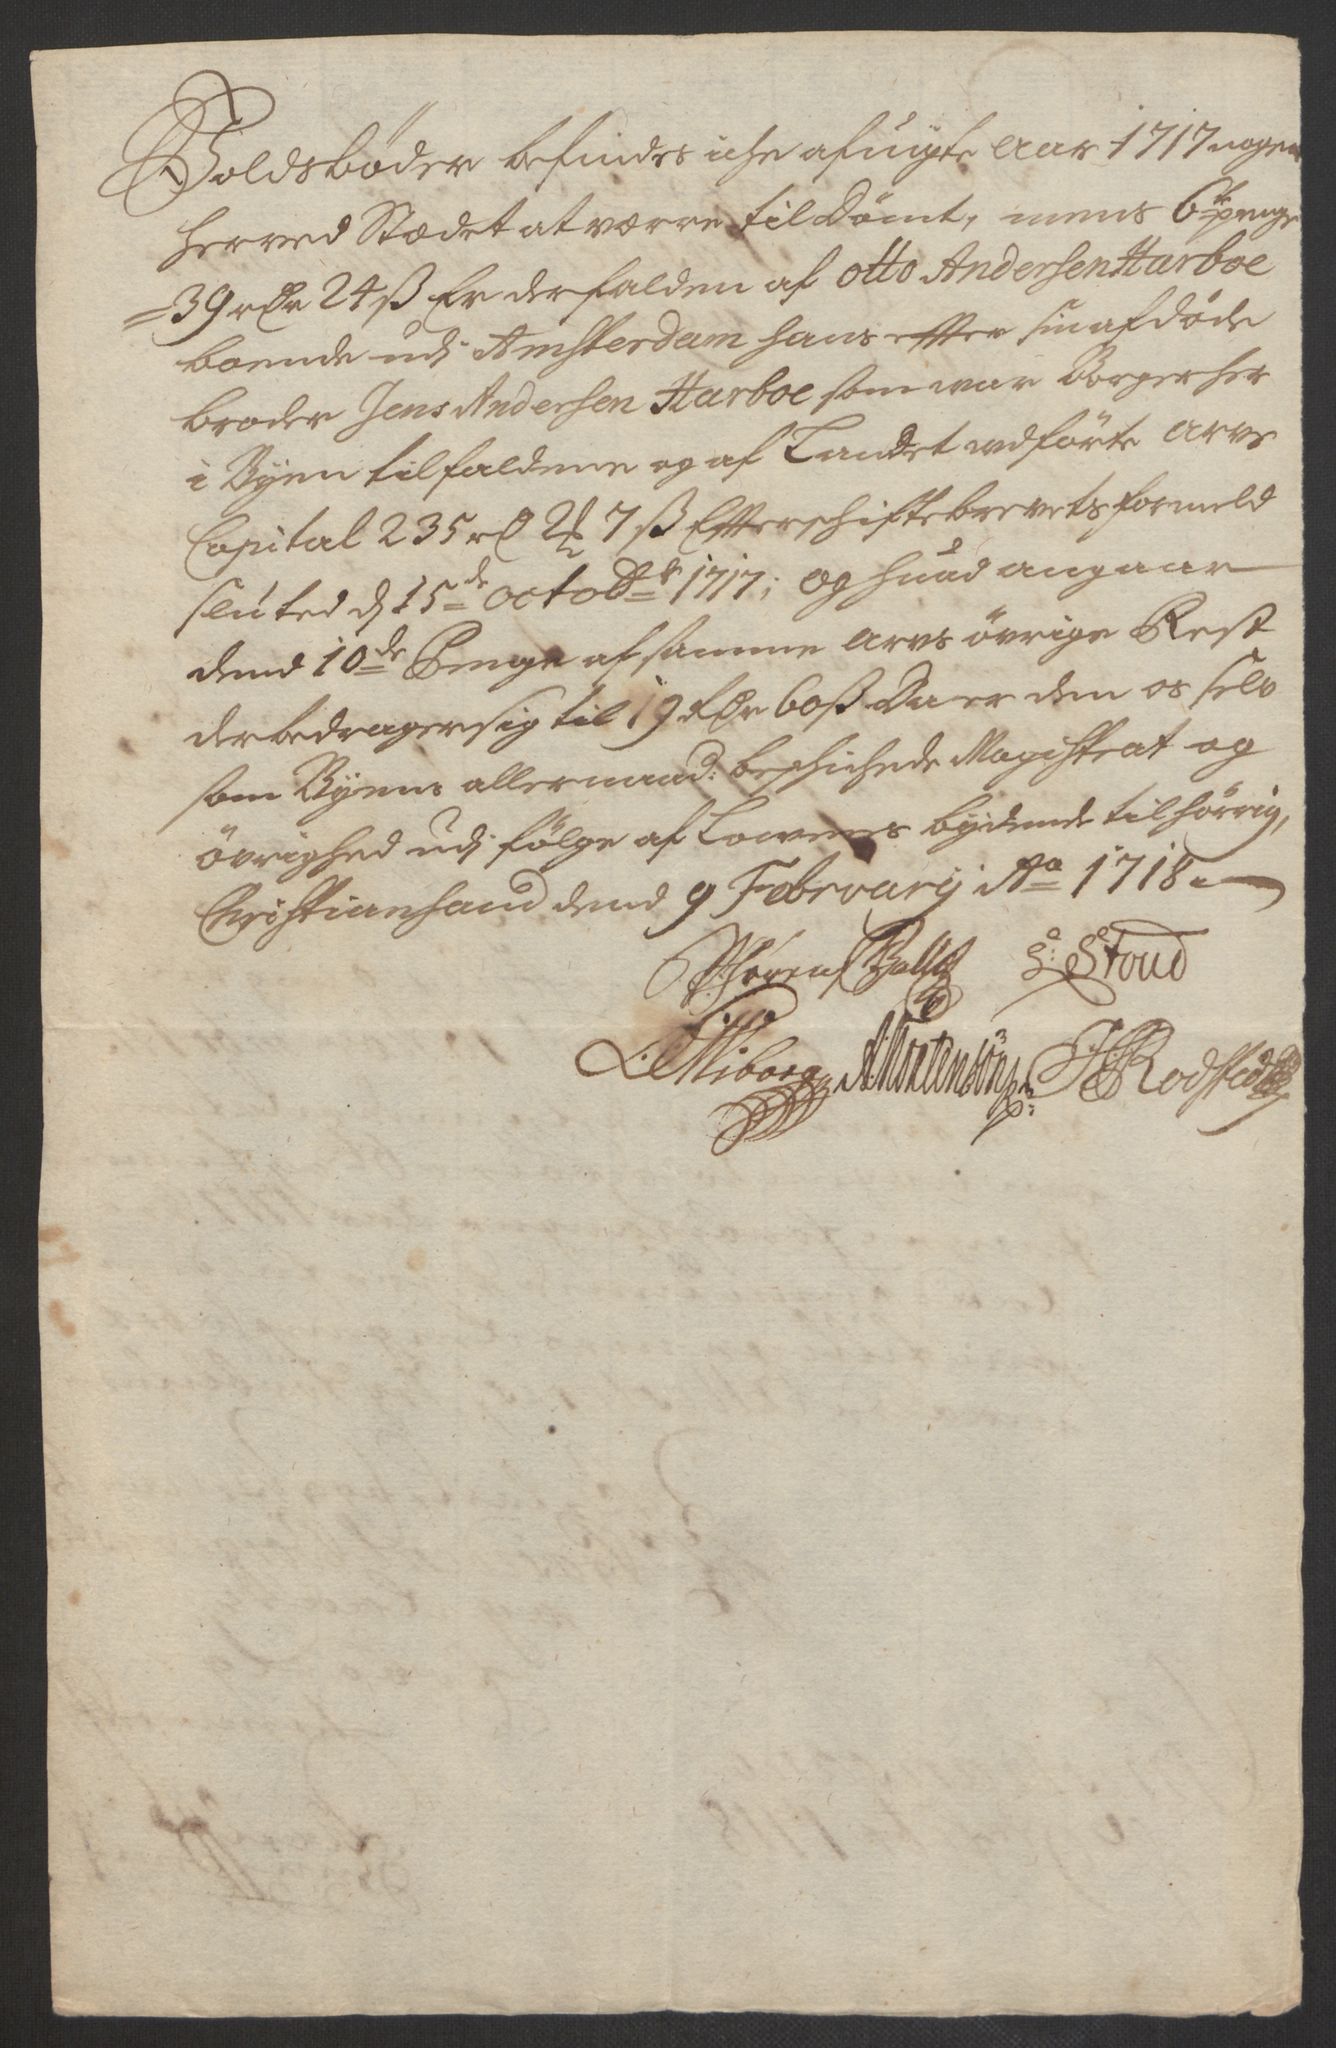 Voldsbøder befindes iche afvigte Aar 1717 nogen
herved Stædet at værre tildømt, mens 6te penge
=39 rdr 24 ß Er der falden af otto Andersen Harboe
boende udj Amsterdam hans effter sin afdøde
broder Jens Andersen Harboe som war Borger her
i Byen tilfaldene og af Landet udførte Arvs
Capital 235 rd 2 7 ß Efter schiftebrevets formeld
sluted d 15de octobr 1717; og huad angaar
dend 10de Penge af samme Arvs øvrige Rest
der bedrager sig til 19 rdr 60 ß Da er den os selv
som Byens allernaad: beschichede Magistrat og
øvrighed udj følge af Lowens bydende tilhørrig,
Christiansand dend 9 Februarij Ao 1718
Søren Balle S: Stoud
L: Wiborg A: Mortensøn J: Rodsted